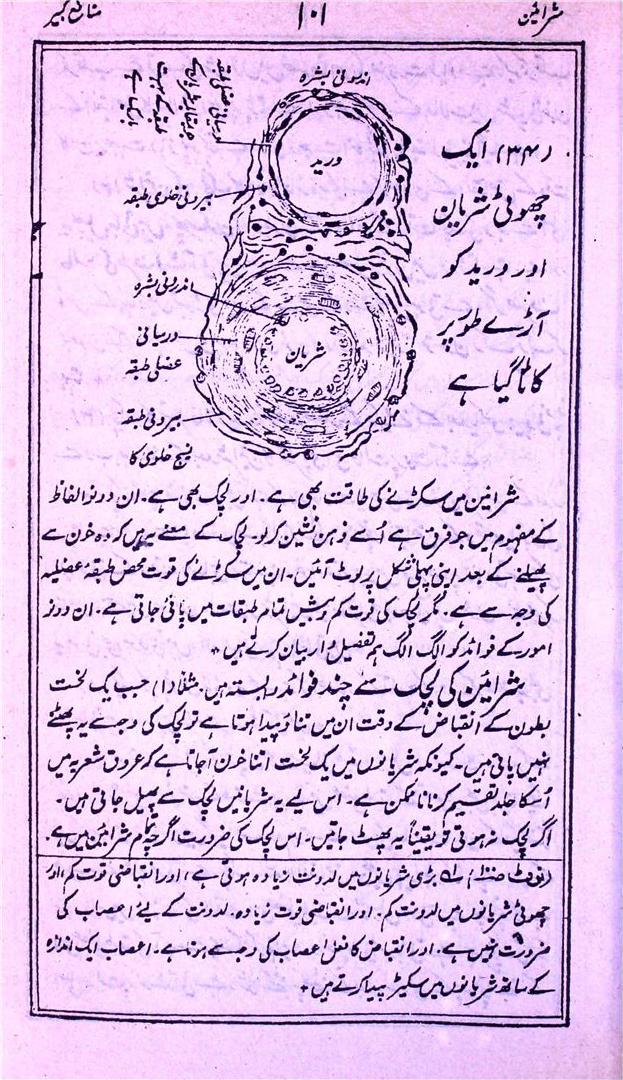 شرائین
۱۰۱
منافع کبیر
(۳۴) ایک
چھوٹی شریان
اور ورید کو
آڑے طور پر
کاٹا گیا ہے
اندرونی بشرہ
درمیانی عضلی طبقہ
ورید
بیرونی خلوی طبقہ
اندرونی بشرہ
درمیانی
عضلی طبقہ
شریان
بیرونی طبقہ
نسیج خلوی کا
شرائین میں سکڑنے کی طاقت بھی ہے۔ اور لچک بھی ہے۔ ان دونو الفاظ
کے مفہوم میں جو فرق ہے اُسے ذہن نشین کرلو۔ لچک کے معنے یہ ہیں کہ وہ خون سے
پھیلنے کے بعد اپنی پہلی شکل پر لوٹ آئیں۔ ان میں سکڑانے کی قوت محض طبقۂ عضلیہ
کی وجہ سے ہے۔ مگر لچک کی قوت کم و بیش تمام طبقات میں پائی جاتی ہے۔ ان دونو
امور کے فوائد کو الگ الگ ہم تفصیل وار بیان کرتے ہیں *
شرائین کی لچک سے چند فوائد وابستہ ہیں۔ مثلاً (۱) جب یک لخت
بطون کے انقباض کے وقت ان میں تناؤ پیدا ہوتا ہے تو لچک کی وجہ سے یہ پھٹنے
نہیں پاتی ہیں۔ کیونکہ شریانوں میں یک لخت اتنا خون آجاتا ہے کہ عروق شعریہ میں
اُسکا جلد تقسیم کرنا ناممکن ہے۔ اس لیے یہ شریانیں لچک سے پھیل جاتی ہیں۔
اگر لچک نہ ہوتی تو یقیناً یہ پھٹ جاتیں۔ اس لچک کی ضرورت اگرچہ تمام شرائین میں ہے
(نوٹ صفحہ ۱۰۰) ۱؎ بڑی شریانوں میں لدونت زیادہ ہوتی ہے، اور انقباضی قوت کم، اور
چھوٹی شریانوں میں لدونت کم۔ اور انقباضی قوت زیادہ۔ لدونت کے لیے اعصاب کی
ضرورت نہیں ہے۔ اور انقباض کا فعل اعصاب کی وجہ سے ہوتا ہے۔ اعصاب ایک اندازہ
کے ساتھ شریانوں میں سکیڑ پیدا کرتے ہیں *